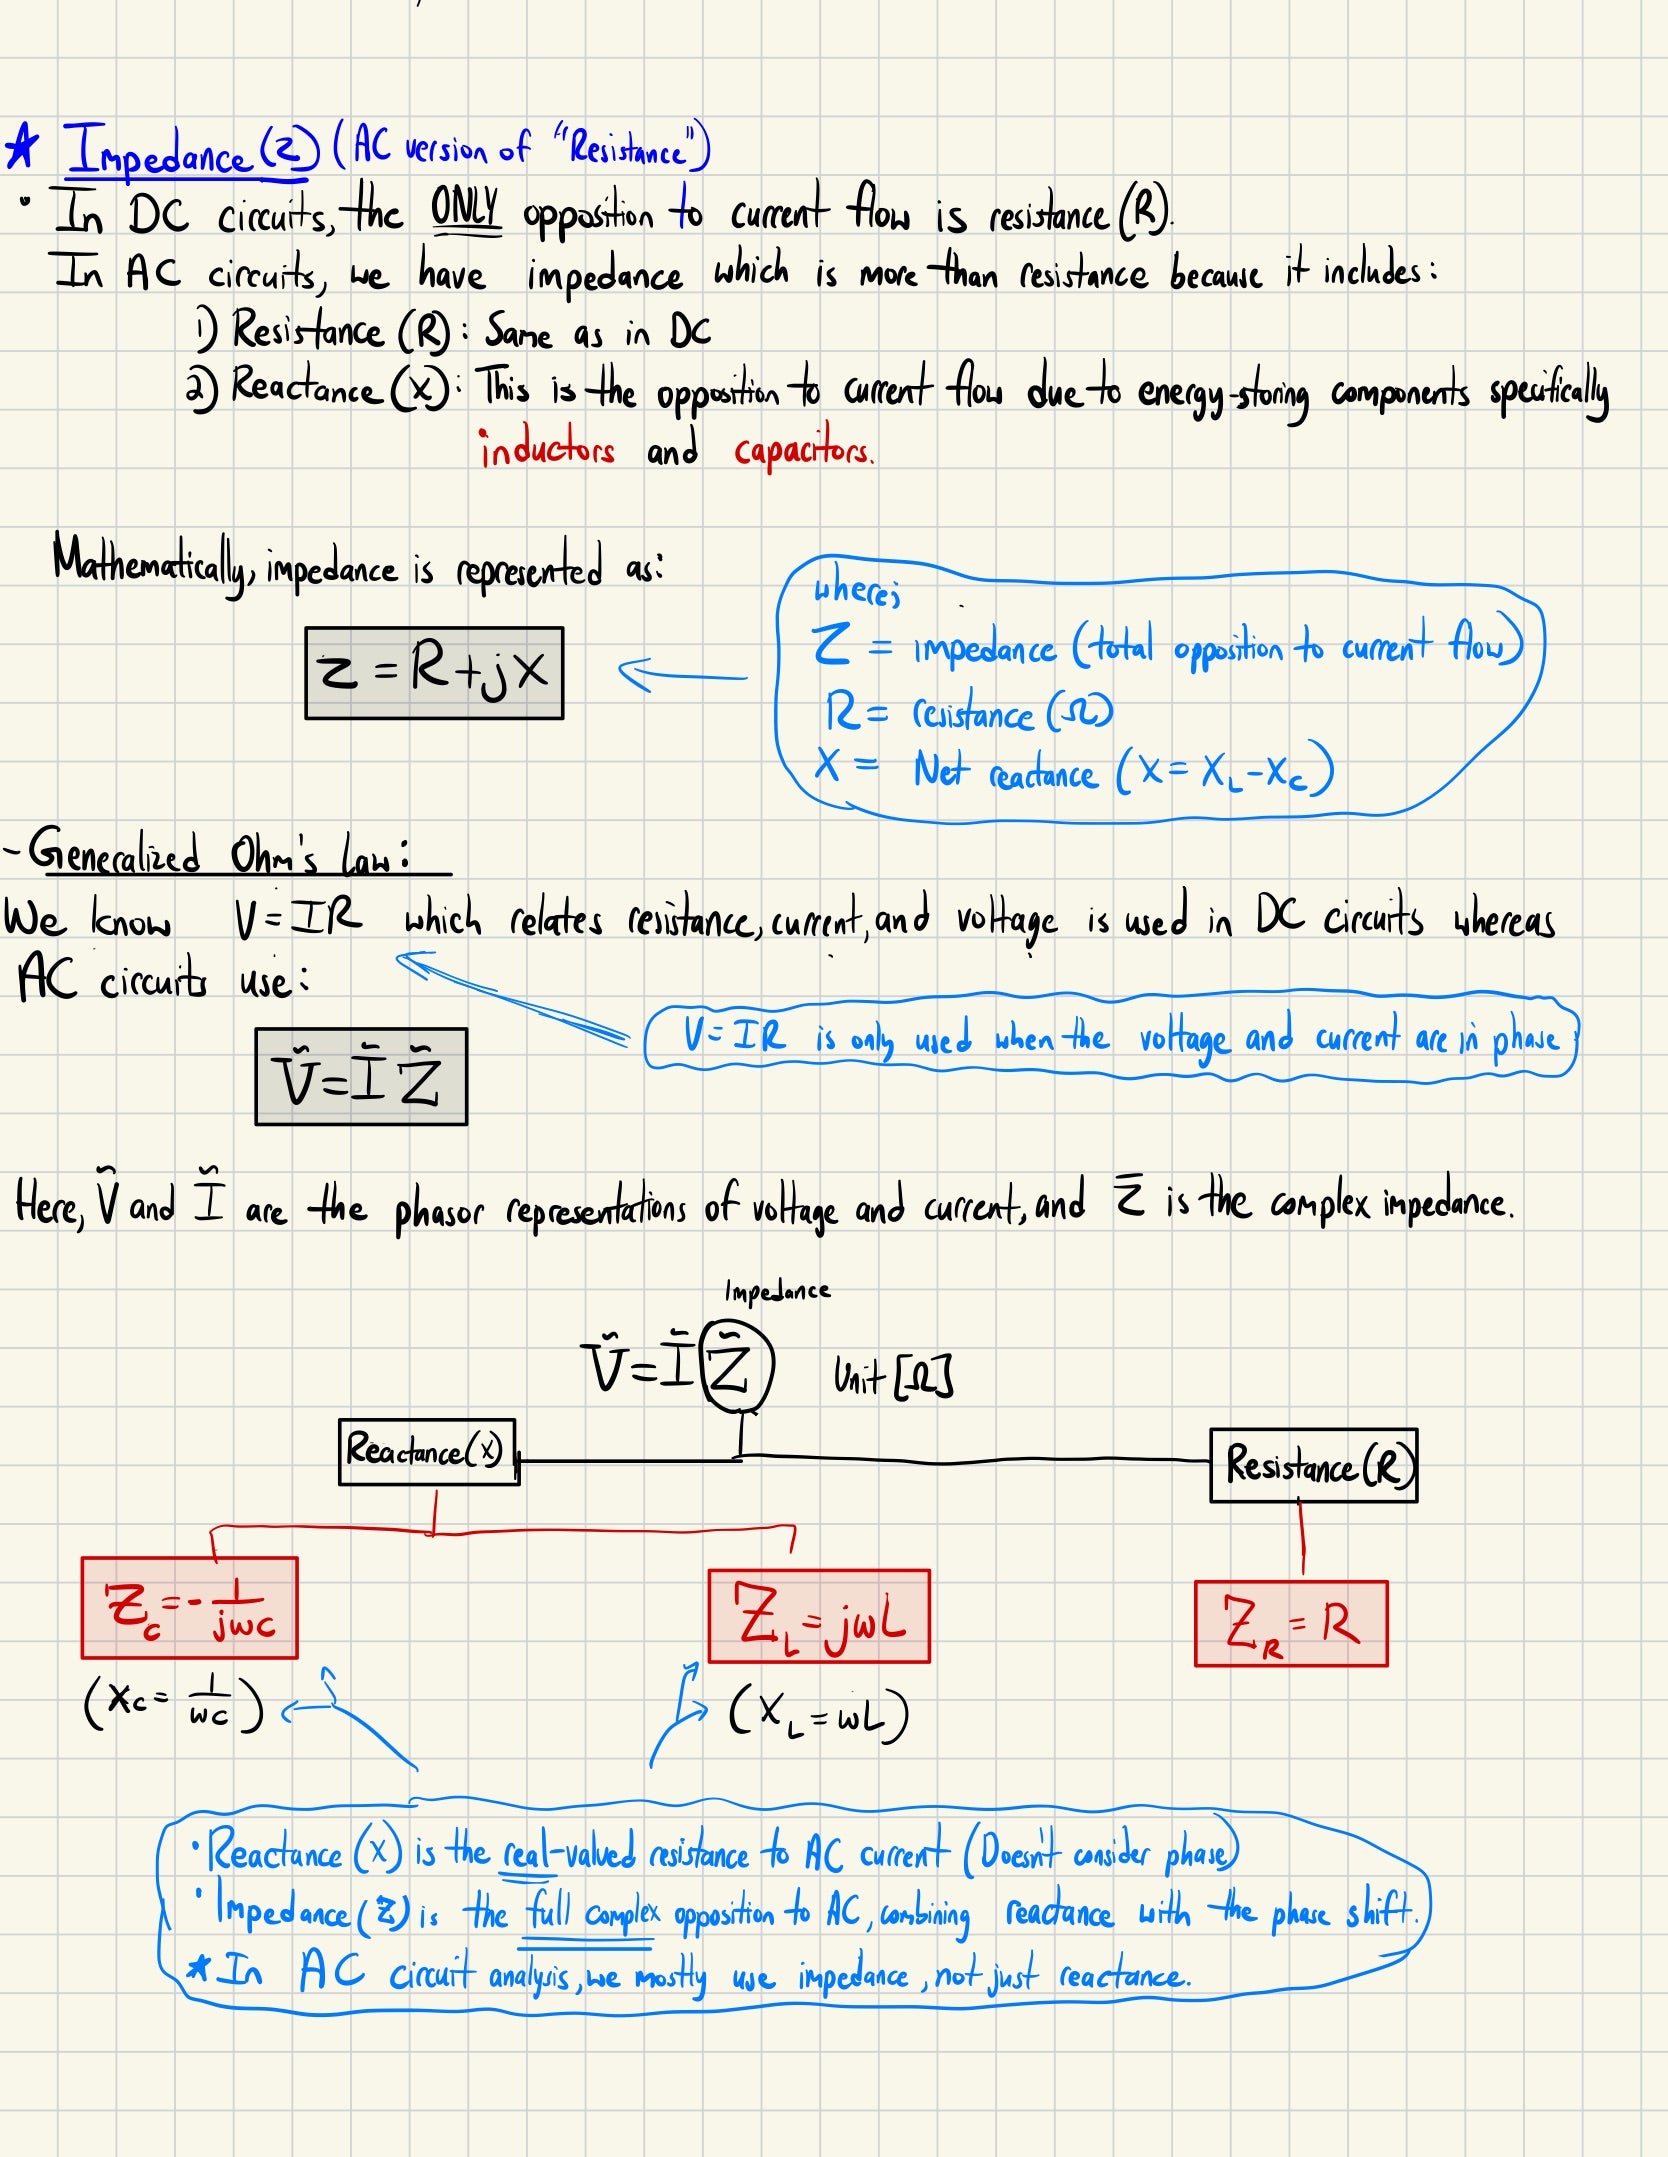 ★ Impedance (Z) (AC version of "Resistance")
• In DC circuits, the ONLY opposition to current flow is resistance (R).
In AC circuits, we have impedance which is more than resistance because it includes:
1) Resistance (R): Same as in DC
2) Reactance (X): This is the opposition to current flow due to energy-storing components specifically
inductors and capacitors.
Mathematically, impedance is represented as:
Z = R + jX
where;
Z = impedance (total opposition to current flow)
R = resistance (Ω)
X = Net reactance (X = X_L - X_C)
- Generalized Ohm's Law:
We know V = IR which relates resistance, current, and voltage is used in DC circuits whereas
AC circuits use:
V = IR is only used when the voltage and current are in phase
Ṽ = Ĩ Z̃
Here, Ṽ and Ĩ are the phasor representations of voltage and current, and Z̅ is the complex impedance.
Impedance
Ṽ = Ĩ Z̃ Unit [Ω]
Reactance (X) Resistance (R)
Z_C = - 1/jωC Z_L = jωL Z_R = R
(X_C = 1/ωC) (X_L = ωL)
• Reactance (X) is the real-valued resistance to AC current (Doesn't consider phase)
• Impedance (Z) is the full complex opposition to AC, combining reactance with the phase shift.
★ In AC circuit analysis, we mostly use impedance, not just reactance.